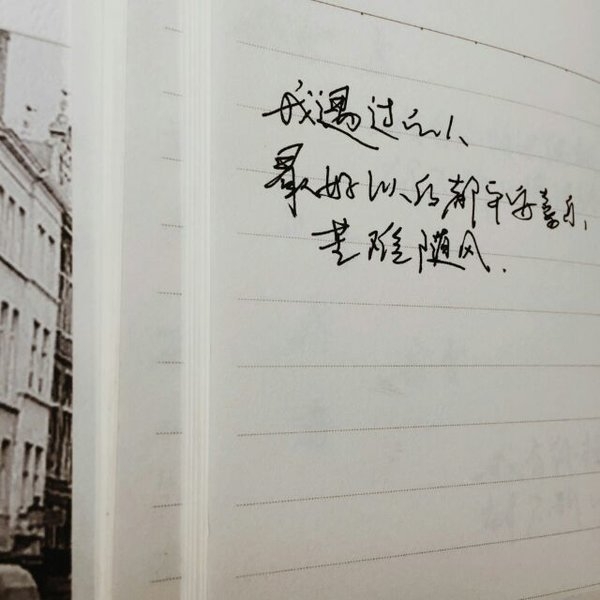 我遇过的人、
最好以后都平安喜乐、
苦难随风.